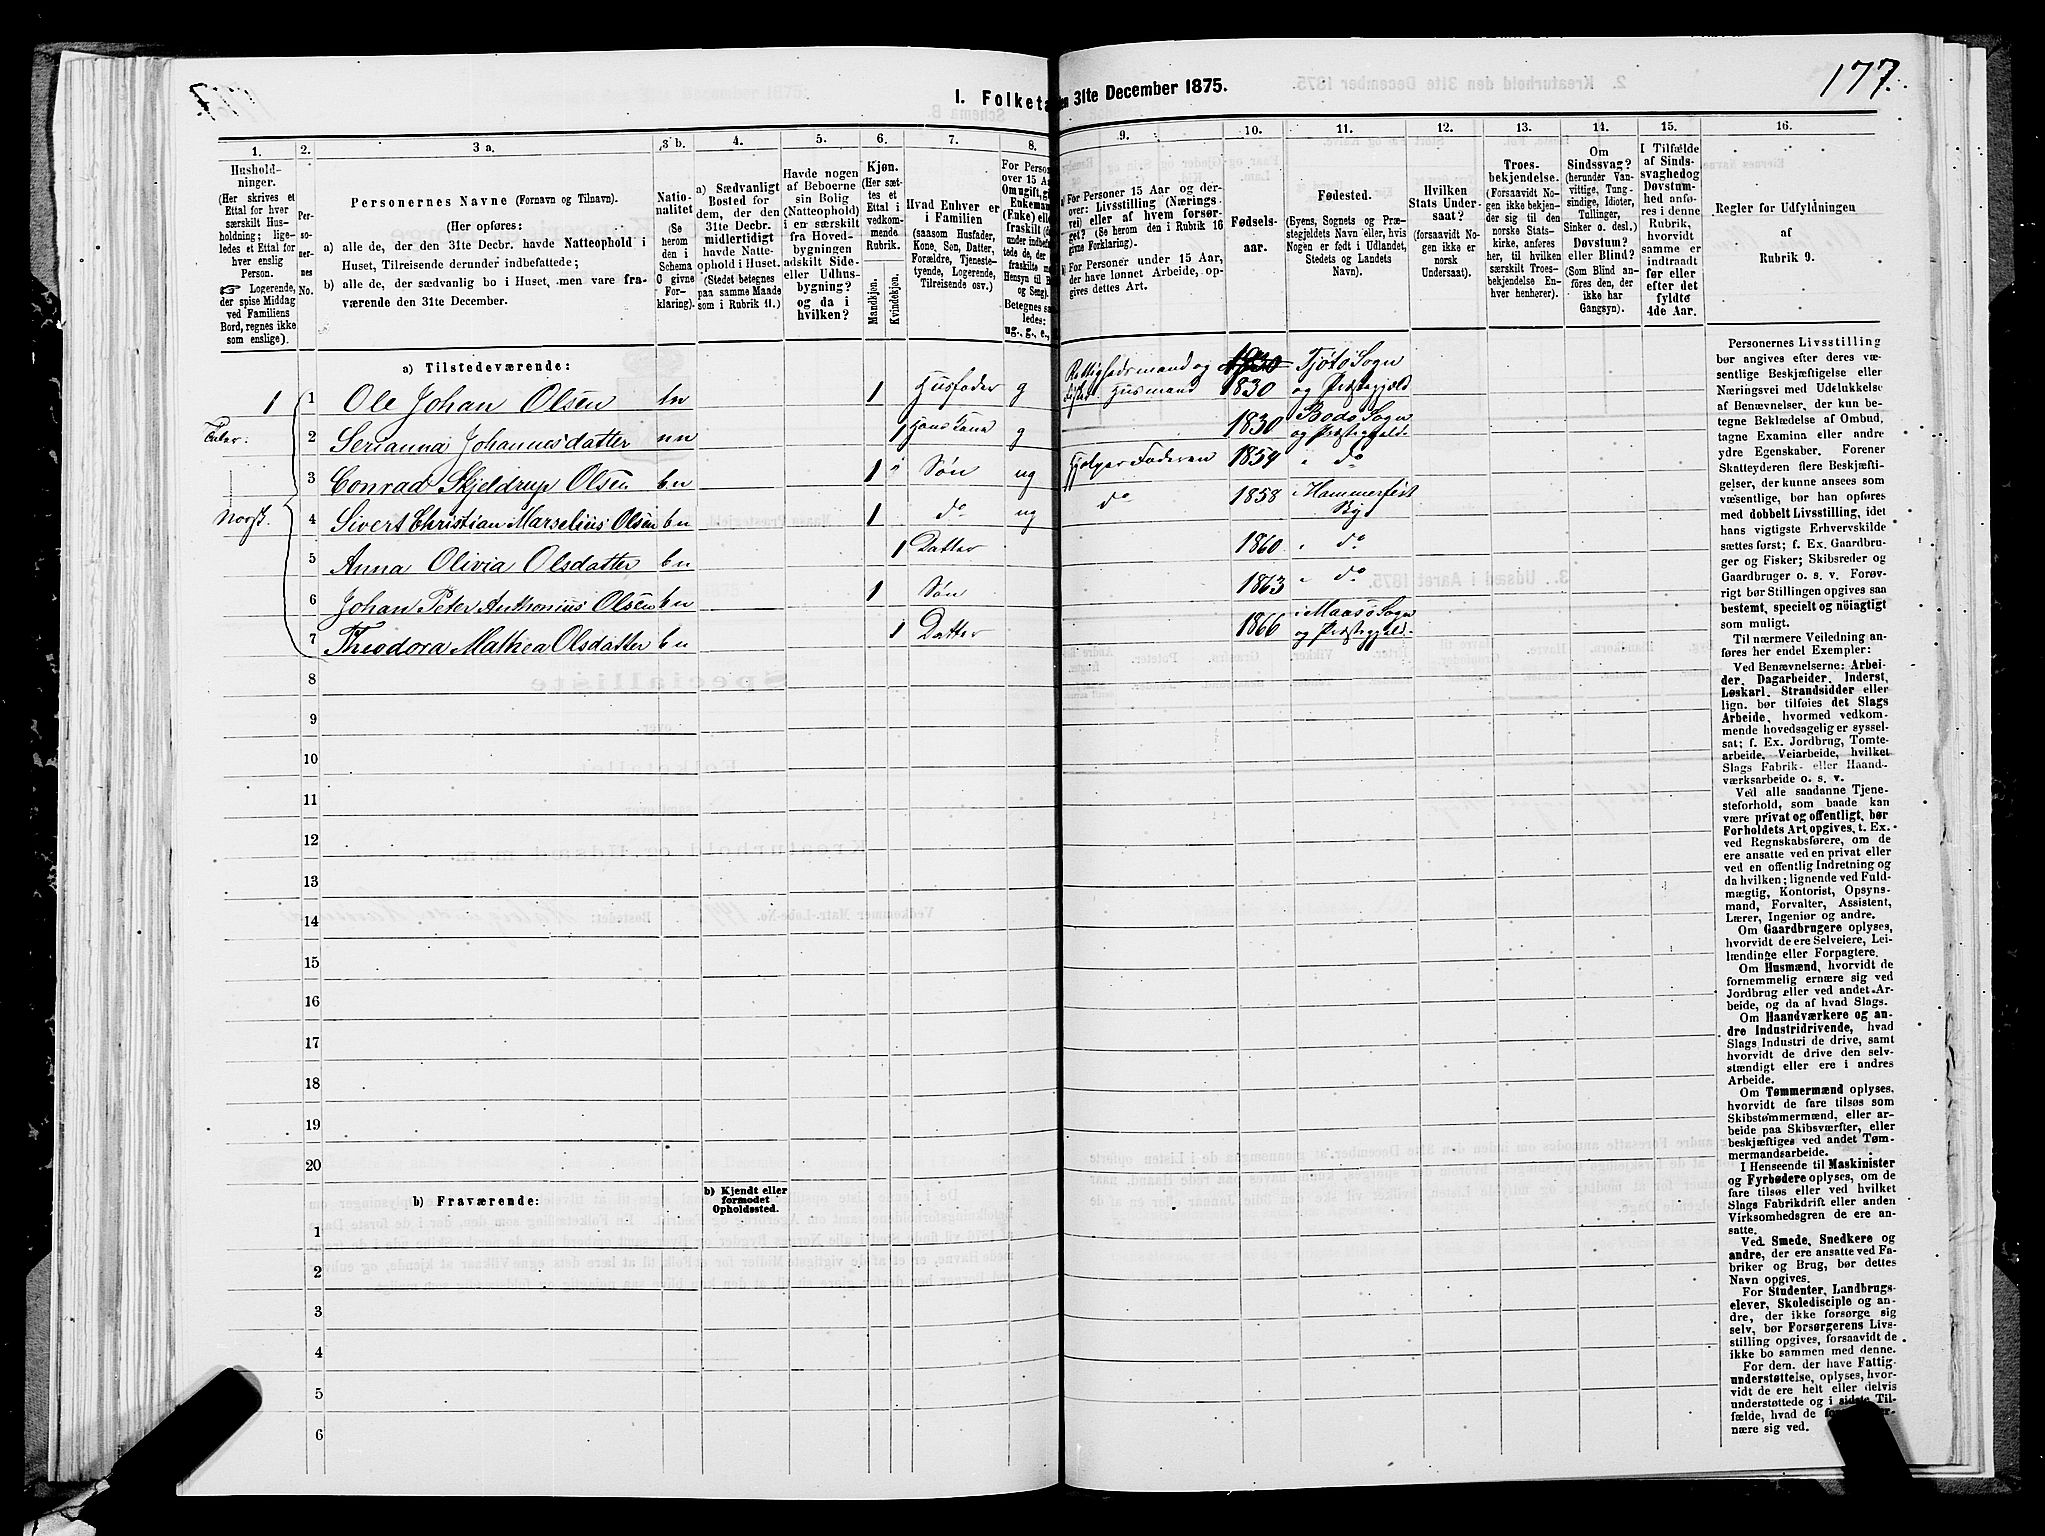 177.
I. Folketa
en 31te December 1875.
1.
2.
3 a.
3 b.
4.
5.
6.
7.
8.
9.
10.
11.
12.
13.
14.
15.
16.
Hushold-
ninger.
(Her skrives et
Ettal for hver
særskilt Hus-
holdning; lige-
ledes et Ettal for
hver enslig
Person.
☞ Logerende,
der spise Middag
ved Familiens
Bord, regnes ikke
som enslige).
Per-
so-
ner-
nes
No.
Personernes Navne (Fornavn og Tilnavn).
(Her opføres:
a) alle de, der den 31te Decbr. havde Natteophold i
Huset, Tilreisende derunder indbefattede;
b) alle de, der sædvanlig bo i Huset, men vare fra-
værende den 31te December.
Natio-
nalitet
(Se
herom
den i
Schema
C givne
For-
klaring).
a) Sædvanligt
Bosted for
dem, der den
31te Decbr.
midlertidigt
havde Natte-
ophold i Huset.
(Stedet betegnes
paa samme Maade
som i Rubrik 11.)
Havde nogen
af Beboerne
sin Bolig
(Natteophold)
i en særskilt
fra Hoved-
bygningen
adskilt Side-
eller Udhus-
bygning?
og da i
hvilken?
Kjøn.
(Her sæt-
tes et
Ettal i
vedkom-
mende
Rubrik.
Mandkjøn.
Kvindekjøn.
Hvad Enhver er
i Familien
(saasom Husfader,
Kone, Søn, Datter,
Forældre, Tjeneste-
tyende, Logerende,
Tilreisende osv.)
For Persone
over 15 Aa
Om ugift, gi
Enkemand
(Enke) elle
fraskilt (de
under indbefa
tede de, de
fraskilte m
Hensyn til B
og Seng).
Betegnes saa
ledes:
ug., g., e.,
a) For Personer 15 Aar og der-
over: Livsstilling (Nærings-
vei) eller af hvem forsør-
get? (Se herom den i Rubrik 16
givne Forklaring).
b) For Personer under 15 Aar,
der have lønnet Arbeide, op-
gives dettes Art.
Fødsels-
aar.
Fødested.
(Byens, Sognets og Præ-
stegjeldets Navn eller, hvis
Nogen er født i Udlandet,
Stedets og Landets
Navn).
Hvilken
Stats Under-
saat?
(forsaavidt No-
gen ikke er
norsk
Undersaat).
Troes-
bekjendelse.
(Forsaavidt No-
gen ikke bekjen-
der sig til den
norske Stats-
kirke, anføres
her, til hvilken
særskilt Troes-
bekjendelse En-
hver henhører).
Om
Sindssvag?
(herunder Van-
vittige, Tung-
sindige, Idioter,
Tullinger,
Sinker o. desl.)
Døvstum?
eller Blind?
(Som Blind an-
føres den, der
ikke har
Gangsyn).
I Tilfælde
af Sinds-
svaghed og
Døvstum-
hed anfø-
res i denne
Rubrik,
hvorvidt
samme er
indtraadt
før eller
efter det
fyldte
4de Aar.
Regler for Udfyldningen
af
Rubrik 9.
a) Tilstedeværende:
1 1 Ole Johan Olsen bn 1 Husfader g Rettighedsmand og Fisker Husmand 1830 1830 Tjøtø Sogn og Præstegjeld
2 Serianna Johannesdatter nn 1 Hans Kone g 1830 Bodø Sogn og Præstegjeld.
3 Conrad Skjeldrup Olsen bn 1 " Søn ug hjelper Faderen 1854 i do
Norsk. 4 Sivert Christian Marselius Olsen bn 1 do ug do 1858 i Hammerfest By
5 Anna Olivia Olsdatter bn 1 Datter 1860 " do
6 Johan Peter Anthonius Olsen bn 1 Søn 1863 " do
7 Theodora Mathea Olsdatter bn 1 Datter 1866 i Maasø Sogn og Præstegjeld.
8
9
10
11
12
13
14
15
16
17
18
19
20
b) Fraværende:
b) Kjendt eller
formodet
Opholdssted.
1
2
3
4
5
6
Personernes Livsstilling
bør angives efter deres væ-
sentlige Beskjæftigelse eller
Næringsvei med Udelukkelse
af Benævnelser, der kun be-
tegne Beklædelse af Ombud,
tagne Examina eller andre
ydre Egenskaber. Forener
Skatteyderen flere Beskjæfti-
gelser, der kunne ansees som
væsentlige, bør han opføres
med dobbelt Livsstilling, idet
hans vigtigste Erhvervskilde
sættes først; f. Ex. Gaardbru-
ger og Fisker; Skibsreder og
Gaardbruger o. s. v. Forøv-
rigt bør Stillingen opgives saa
bestemt, specielt og nøiagtigt
som muligt.
Til nærmere Veiledning an-
føres her endel Exempler:
Ved Benævnelserne: Arbei-
der, Dagarbeider, Inderst,
Løskarl, Strandsidder eller
lign. bør tilføies det Slags
Arbeide, hvormed vedkom-
mende hovedsagelig er syssel-
sat; f. Ex. Jordbrug, Tomte-
arbeide, Veiarbeide, hvilket
Slags Fabrik- eller Haand-
værksarbeide o. s. v.
Ved alle saadanne Tjene-
steforhold, som baade kan
være privat og offentligt, bør
Forholdets Art opgives, t. Ex.
ved Regnskabsførere, om de
ere ansatte ved en privat eller
ved en offentlig Indretning og
da hvilken; lignende ved Fuld-
mægtig, Kontorist, Opsyns-
mand, Forvalter, Assistent,
Lærer, Ingeniør og andre.
Om Gaardbrugere oplyses,
hvorvidt de ere Selveiere, Lei-
lændinge eller Forpagtere.
Om Husmænd, hvorvidt de
fornemmelig ernære sig ved
Jordbrug eller ved andet Ar-
beide, og da af hvad Slags.
Om Haandværkere og an-
dre Industridrivende, hvad
Slags Industri de drive, samt
hvorvidt de drive den selv-
stændigt eller ere i andres
Arbeide.
Om Tømmermænd oplyses,
hvorvidt de fare tilsøs som
Skibstømmermænd, eller ar-
beide paa Skibsværfter, eller
beskjæftiges ved andet Tøm-
mermandsarbeide.
I Henseende til Maskinister
og Fyrbødere oplyses, om de
fare tilsøs eller ved hvilket
Slags Fabrikdrift eller anden
Virksomhedsgren de ere an-
satte.
Ved Smede, Snedkere og
andre, der ere ansatte ved Fa-
briker og Brug, bør dettes
Navn opgives.
For Studenter, Landbrugs-
elever, Skoledisciple og an-
dre, der ikke forsørge sig
selv, bør Forsørgerens Livs-
stilling opgives, forsaavidt de
ikke bo sammen med denne.
For dem, der have Fattig-
understøttelse, oplyses, hvor-
vidt de ere helt eller delvis
understøttede og i sidste Til-
fælde, hvad de
nære sig ved.